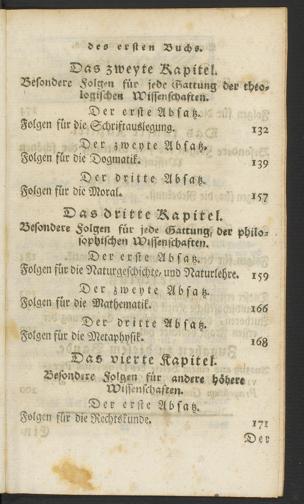 des ersten Buchs.
Das zweyte Kapitel.
Besondere Folgen für jede Gattung der theo-
logischen Wissenschaften.
Der erste Absatz.
Folgen für die Schriftauslegung. 132
Der zweyte Absatz.
Folgen für die Dogmatik. 139
Der dritte Absatz.
Folgen für die Moral. 157
Das dritte Kapitel.
Besondere Folgen für jede Gattung, der philo-
sophischen Wissenschaften.
Der erste Absatz.
Folgen für die Naturgeschichte, und Naturlehre. 159
Der zweyte Absatz.
Folgen für die Mathematik. 166
Der dritte Absatz.
Folgen für die Metaphysik. 168
Das vierte Kapitel.
Besondere Folgen für andere höhere
Wissenschaften.
Der erste Absatz.
Folgen für die Rechtskunde. 171
Der